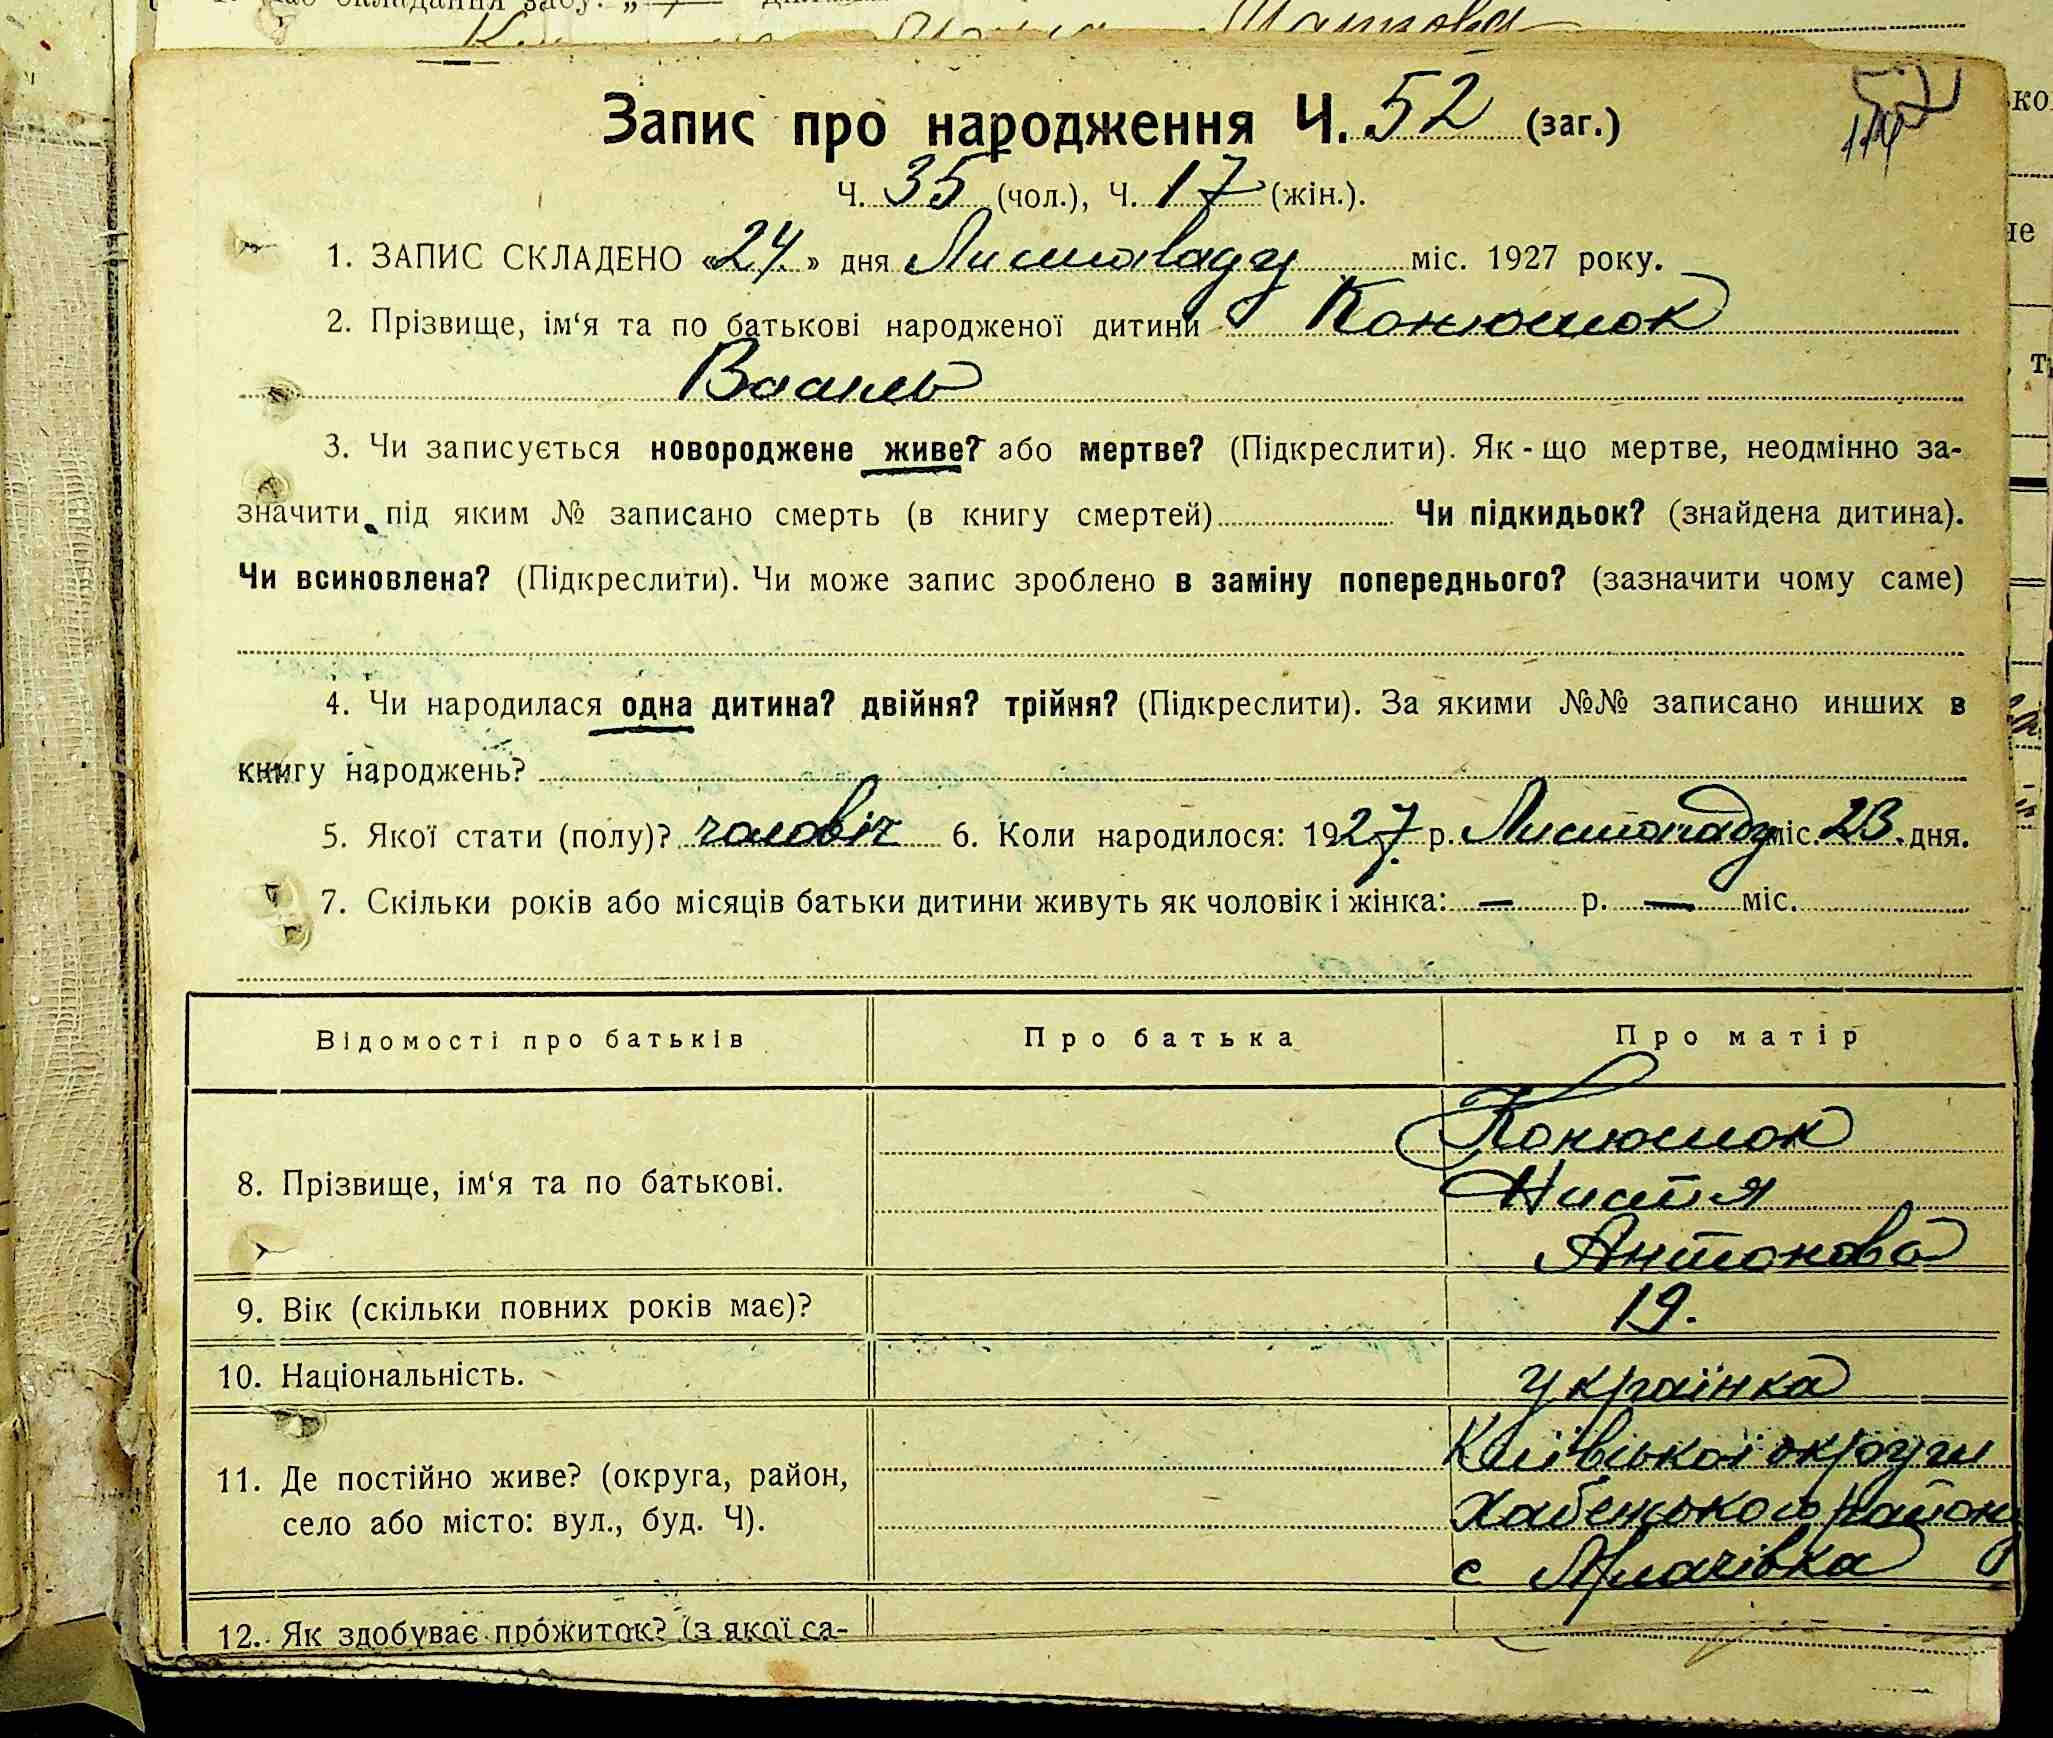 Запис про народження Ч. 52 (заг.)
Ч. 35 (чол.), Ч. 17 (жін.).
1. ЗАПИС СКЛАДЕНО «24» дня Листопаду міс. 1927 року.
2. Прізвище, ім‘я та по батькові народженої дитини Конюшок
Василь
3. Чи записується новороджене живе? або мертве? (Підкреслити). Як - що мертве, неодмінно за-
значити під яким № записано смерть (в книгу смертей) Чи підкидьок? (знайдена дитина).
Чи всиновлена? (Підкреслити). Чи може запис зроблено в заміну попереднього? (зазначити чому саме)
4. Чи народилася одна дитина? двійня? трійня? (Підкреслити). За якими №№ записано инших в
книгу народжень?
5. Якої стати (полу)? чоловіч 6. Коли народилося: 1927 р. Листопаду міс. 23 дня.
7. Скільки років або місяців батьки дитини живуть як чоловік і жінка: — р. — міс.
Відомості про батьків Про батька Про матір
Конюшок
8. Прізвище, ім‘я та по батькові. Настя
Антонова
9. Вік (скільки повних років має)? 19.
10. Національність. українка
Київської округи
11. Де постійно живе? (округа, район, Хабенського району
село або місто: вул., буд. Ч). с
12. Як здобуває прожиток? (з якої са-